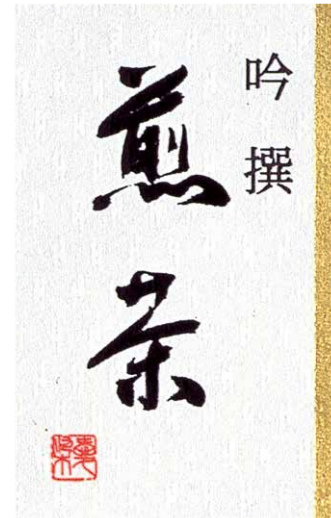 吟撰
煎茶